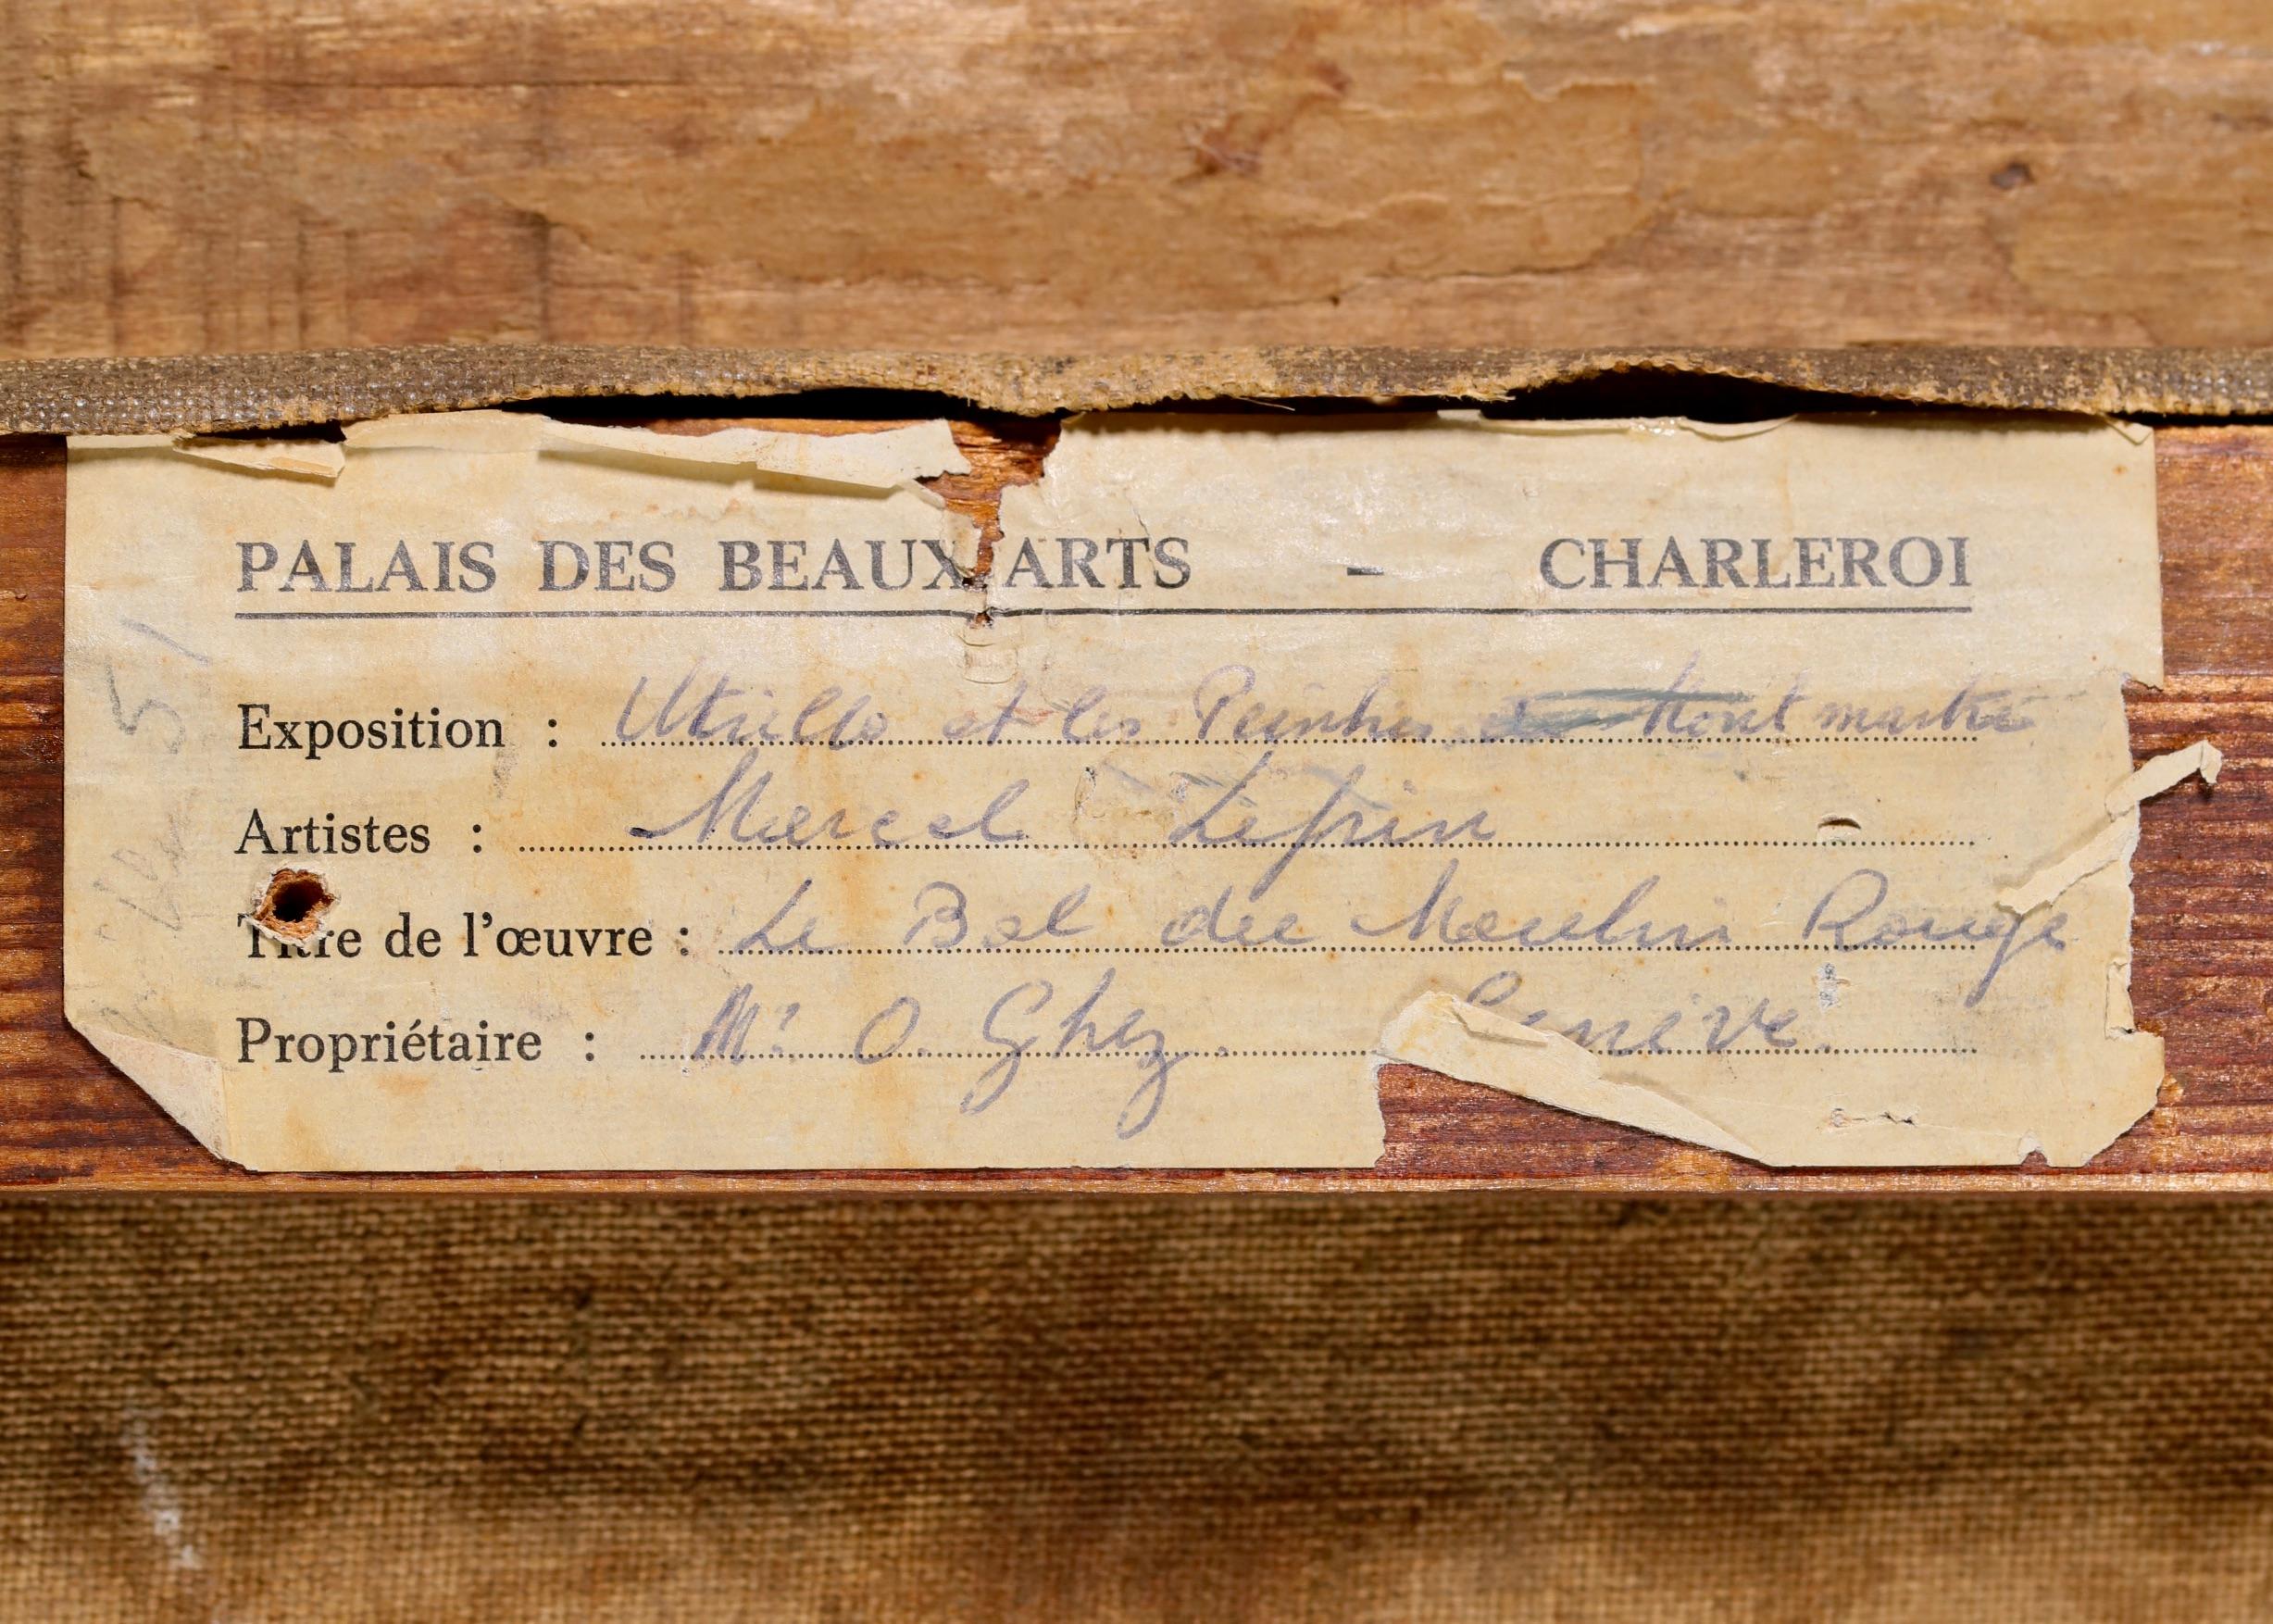 PALAIS DES BEAUX ARTS - CHARLEROI
Exposition : Utrillo et les Peintres de Montmartre
Artistes : Marcel Leprin
Titre de l'œuvre : Le Bal du Moulin Rouge
Propriétaire : Mr O. Ghez. Genève.
51